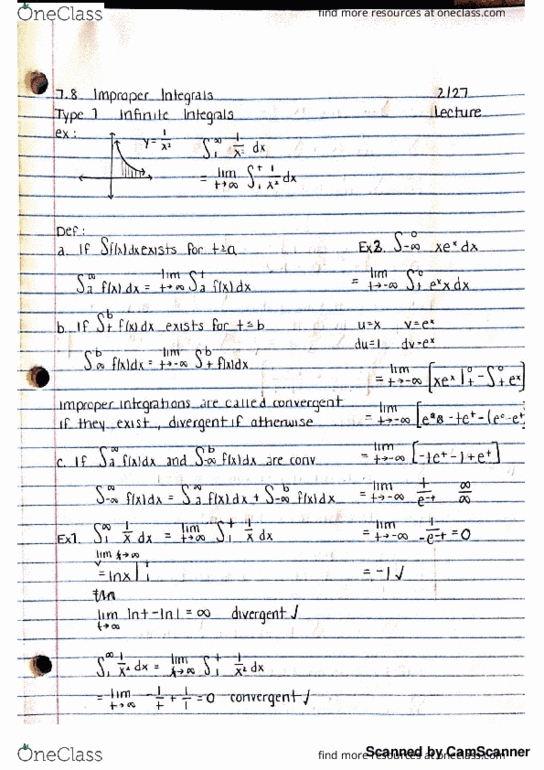 OneClass
find more resources at oneclass.com
7.8 Improper Integrals
2/27
Type 1 Infinite Integrals
Lecture
ex:
y = 1/x²
∫₁^∞ 1/x² dx
= lim t→∞ ∫₁^t 1/x² dx
Def:
a. If ∫f(x)dx exists for t≥a
∫ₐ^∞ f(x)dx = lim t→∞ ∫ₐ^t f(x)dx
b. If ∫ₜ^b f(x)dx exists for t≤b
∫∞^b f(x)dx = lim t→-∞ ∫ₜ^b f(x)dx
Improper integrations are called convergent
if they exist, divergent if otherwise
c. If ∫ₐ^∞ f(x)dx and ∫-∞^b f(x)dx are conv
∫-∞^∞ f(x)dx = ∫ₐ^∞ f(x)dx + ∫-∞^b f(x)dx
Ex1. ∫₁^∞ 1/x dx = lim t→∞ ∫₁^t 1/x dx
lim t→∞
= lnx |
lim t→∞ lnt - ln1 = ∞ divergent ✓
∫₁^∞ 1/x² dx = lim t→∞ ∫₁^t 1/x² dx
= lim t→∞ -1/t + 1/1 = 0 convergent ✓
Ex2. ∫-∞^0 xe^x dx
= lim t→-∞ ∫ₜ^0 e^x x dx
u=x v=e^x
du=1 dv=e^x
= lim t→-∞ [xe^x |ₜ^0 - ∫ₜ^0 e^x]
= lim t→-∞ [e^0 - te^t - (e^0 - e^t
= lim t→-∞ [-te^t - 1 + e^t]
= lim t→-∞ t/e^-t ∞/∞
= lim t→-∞ 1/-e^-t = 0
= -1 ✓
OneClass
find more resources at oneclass.com
Scanned by CamScanner